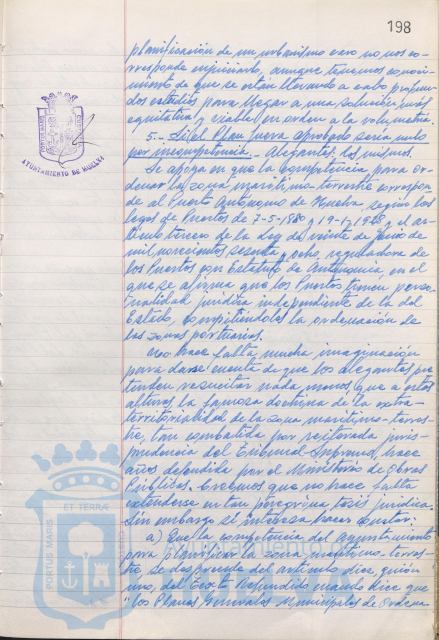 198
planificación de un urbanismo caro no nos co-
rresponde enjuiciarlo, aunque tenemos conoci-
miento de que se están llevando a cabo profun-
dos estudios para llegar a una solución más
equitativa y viable en orden a la volumetría
5.- Si el Plan fuera aprobado sería nulo
por incompetencia.- Alegantes: los mismos.
Se apoya en que la competencia para or-
denar la zona marítimo-terrestre correspon-
de al Puerto Autónomo de Huelva, según las
leyes de Puertos de 7-5-1880 y 19-1-1928, y el ar-
tículo tercero de la Ley de veinte de Junio de
mil novecientos sesenta y ocho, reguladora de
los Puertos con Estatuto de Autonomía, en el
que se afirma que los Puertos tienen perso-
nalidad jurídica independiente de la del
Estado, compitiéndoles la ordenación de
las zonas portuarias.
No hace falta mucha imaginación
para darse cuenta de que los alegantes pre-
tenden resucitar nada menos que a estas
alturas la famosa doctrina de la extra-
territorialidad de la zona marítimo-terres-
tre, tan combatida por reiterada juris-
prudencia del Tribunal Supremo, hace
años defendida por el Ministerio de Obras
Públicas. Creemos que no hace falta
extenderse en tan peregrina tesis jurídica.
Sin embargo sí interesa hacer constar:
a) Que la competencia del Ayuntamiento
para planificar la zona marítimo-terres-
tre se desprende del artículo doce, guión
uno, del Texto Refundido cuando dice que
"los Planes Generales Municipales de Ordena-
AYUNTAMIENTO DE HUELVA
PORTUS MARIS
ET TERRÆ